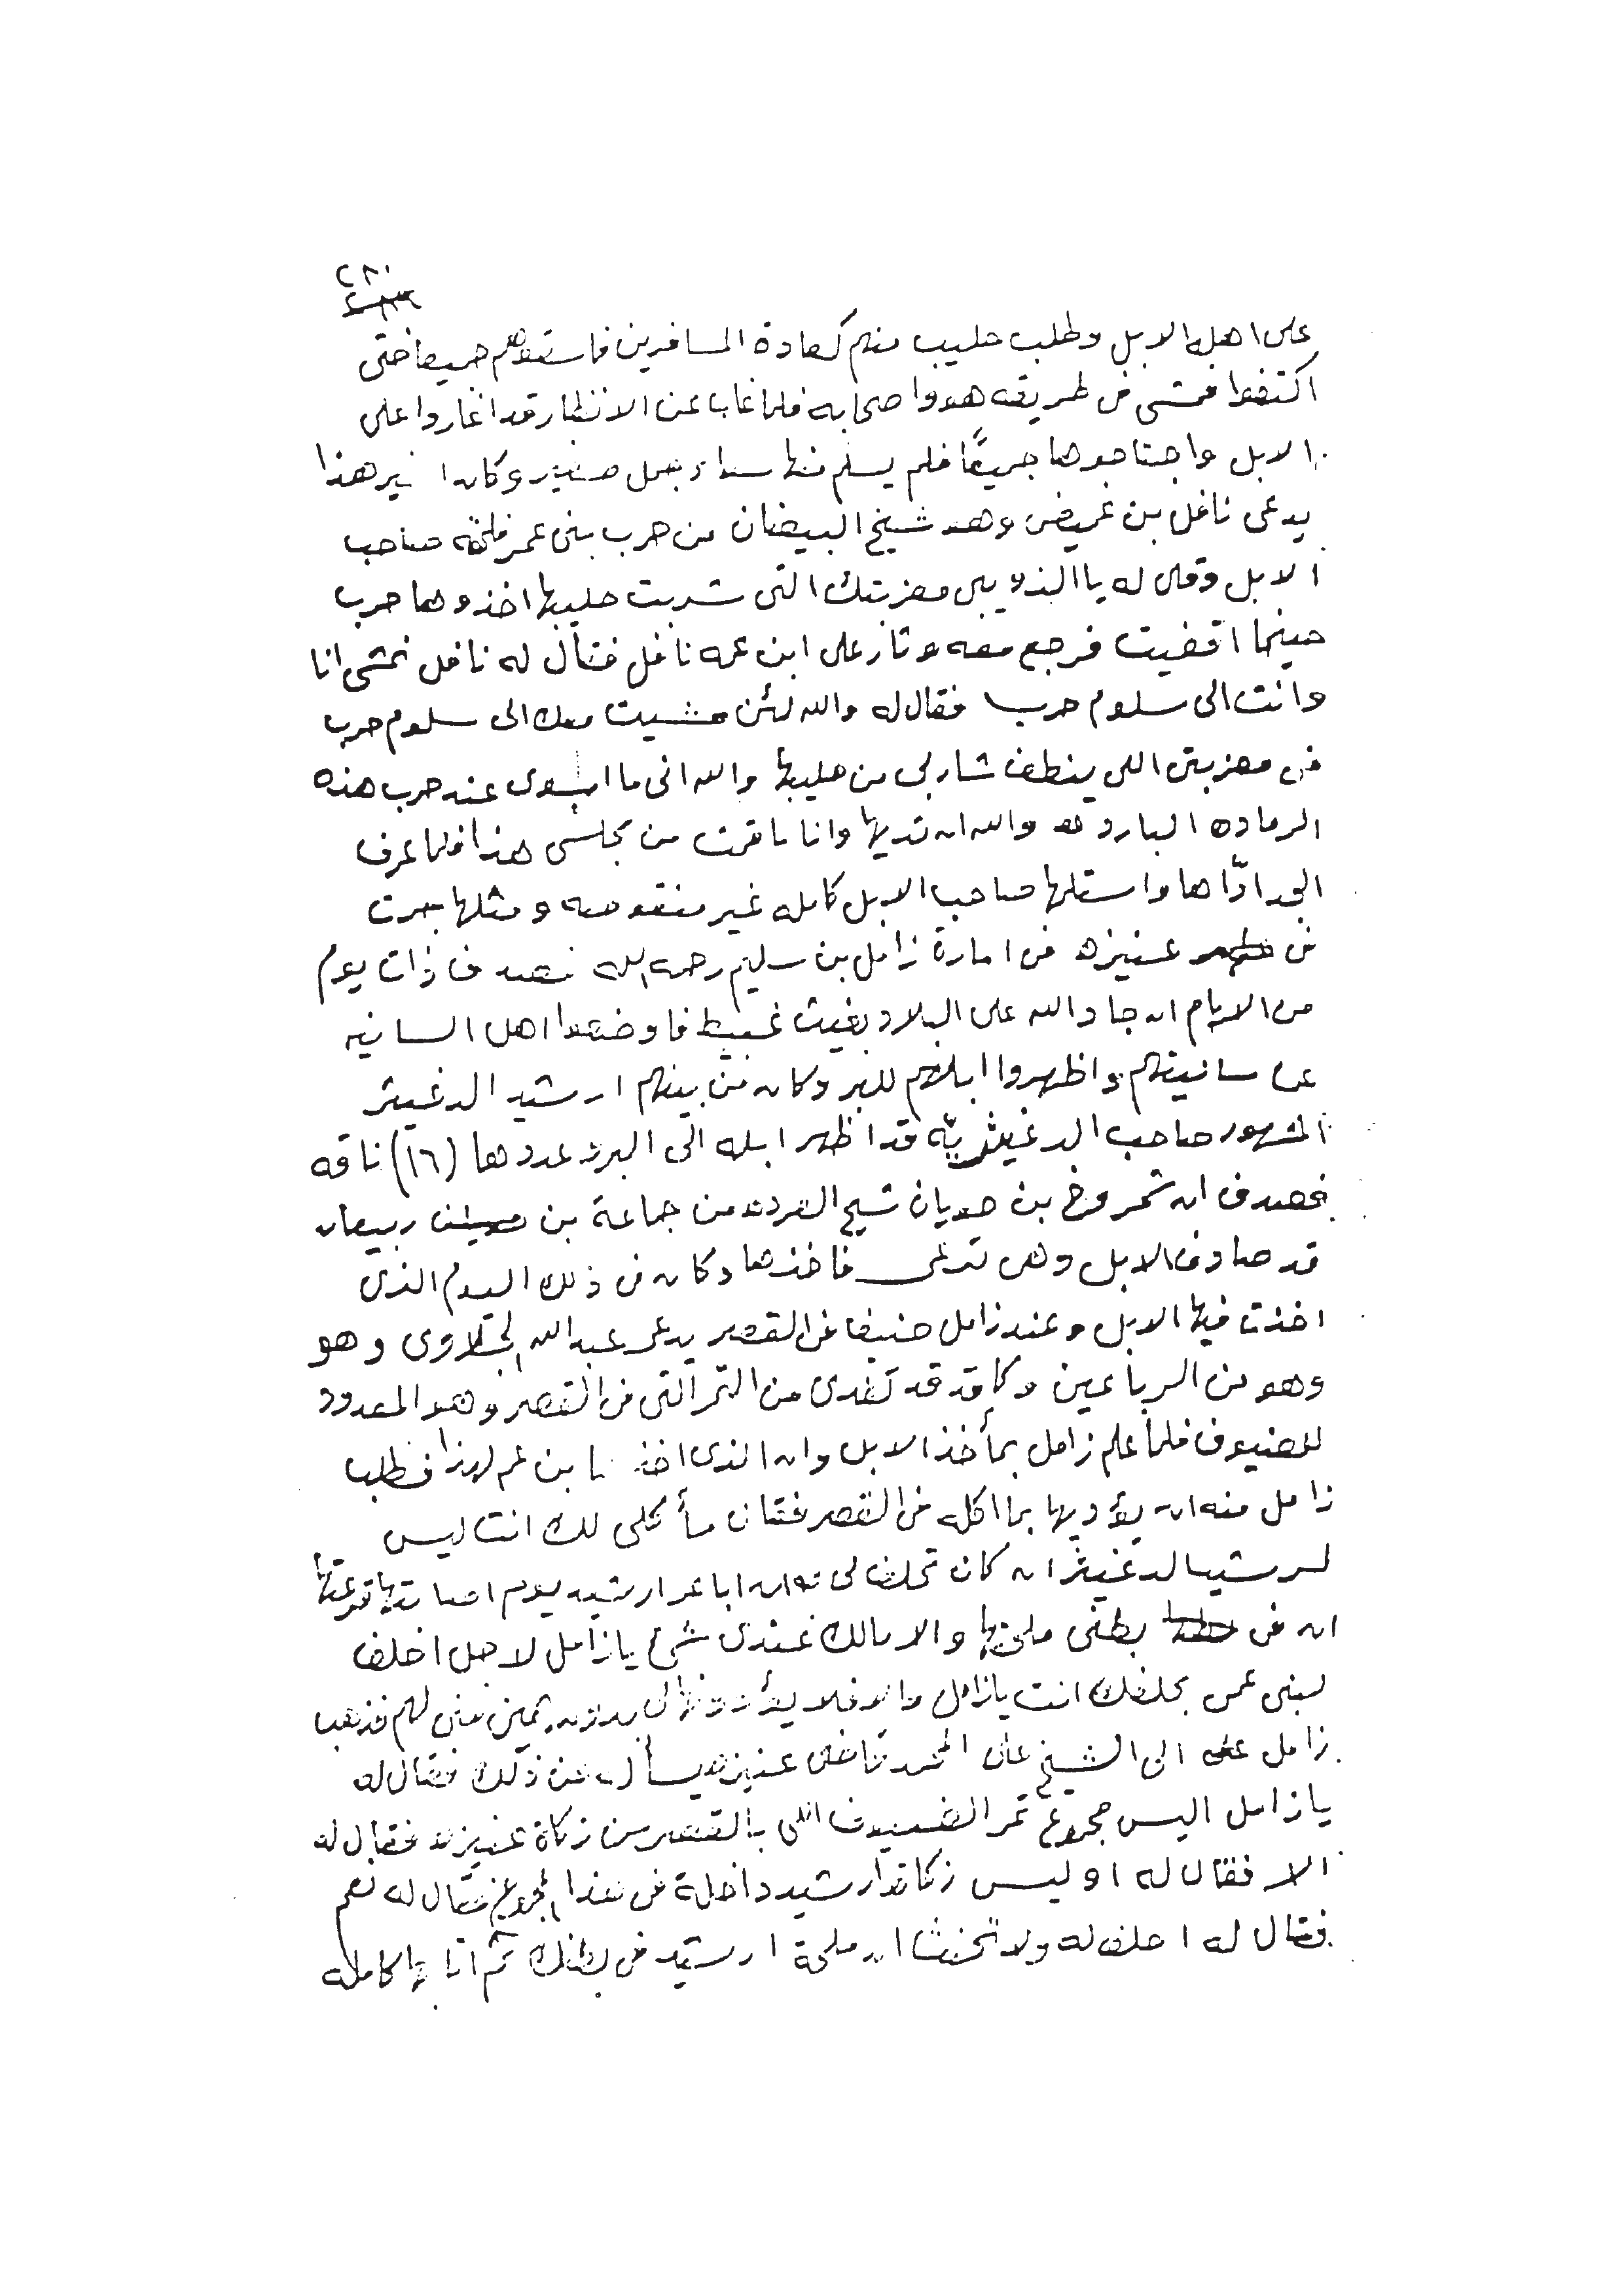 ٢٨٠
على اهل الابل وطلب حليب منهم كعادة المسافرين فاسقوهم جميعا حتى
اكتفوا فمشى في طريقه هو واصحابه فلما غابا عن الانظار قد اغاروا على
الابل واجتاحوها جميعًا فلم يسلم منها سوا جمل صغير وكان هذا
يدعى نافل بن غميض وهو شيخ البيضان من حرب بني عمر فلحقه صاحب
الابل وقال له يا الذويبي معزبتك التي شربت حليبها اخذوها حرب
حينما اقفيت فرجع معه وثار على ابن عمه نافل فقال له نافل نمشي انا
وانت الى سلوم حرب فقال له والله لئن مشيت معك الى سلوم حرب
في معزبتي اللي ينطف شاربي من حليبها والله اني ما اسوى عند حرب هذه
الرماده البارده والله ان تديها وانا ما قمت من مجلسي هذا فلما عرف
الجد ادّاها واستلمها صاحب الابل كامله غير منقوصه ومثلها جرت
في عنيزه في امارة زامل بن سليم رحمه الله فصدف ذات يوم
من الايام ان جاد الله على البلاد بغيث غبيط فاوضعوا اهل السانيه
عن سانيتهم واظهروا ابلهم للبر وكان من بينهم ارشيد الدغيثر
المشهور صاحب الدغيثريه قد اظهر ابله الى البر عددها (١٦) ناقه
فصدف ان شمروخ بن هديان شيخ القرده من جماعة بن ربيعان
قد صادف الابل وهي ترعى فاخذها وكان في ذلك اليوم الذي
اخذت فيها الابل وعند زامل ضيفا في القصر يدعى عبدالله الجلاوي وهو
وهو من الرباعين وكان قد قد تغدى من التمر التي في القصر وهو المعدود
للضيوف فلما علم زامل بمأخذ الابل وان الذي اخذها بن عم لهذا فطلب
زامل منه ان يؤديها بما اكله في القصر فقال مأكلي لك انت ليس
لرشيد الدغيثر ان كان تحلف لي ان ارشيد يوم
ان في بطني ملحتها والا مالك عندي شيء يا زامل لاجل اخلف
لبني عمي بحلفك انت يا زامل والا فلا يؤدونها لي بدون يمين مني لهم فذهب
زامل الى الشيخ علي المحمد قاضي عنيزه يسأله عن ذلك فقال له
يا زامل اليس مجموع تمر الضيوف اللي بالقصر من زكاة عنيزه فقال له
الا فقال له اوليس زكاة ارشيد داخلة في هذا المجموع فقال له نعم
فقال له احلف له ولا تحنث ان ملحة ارشيد في بطنك ثم اتا بها كامله